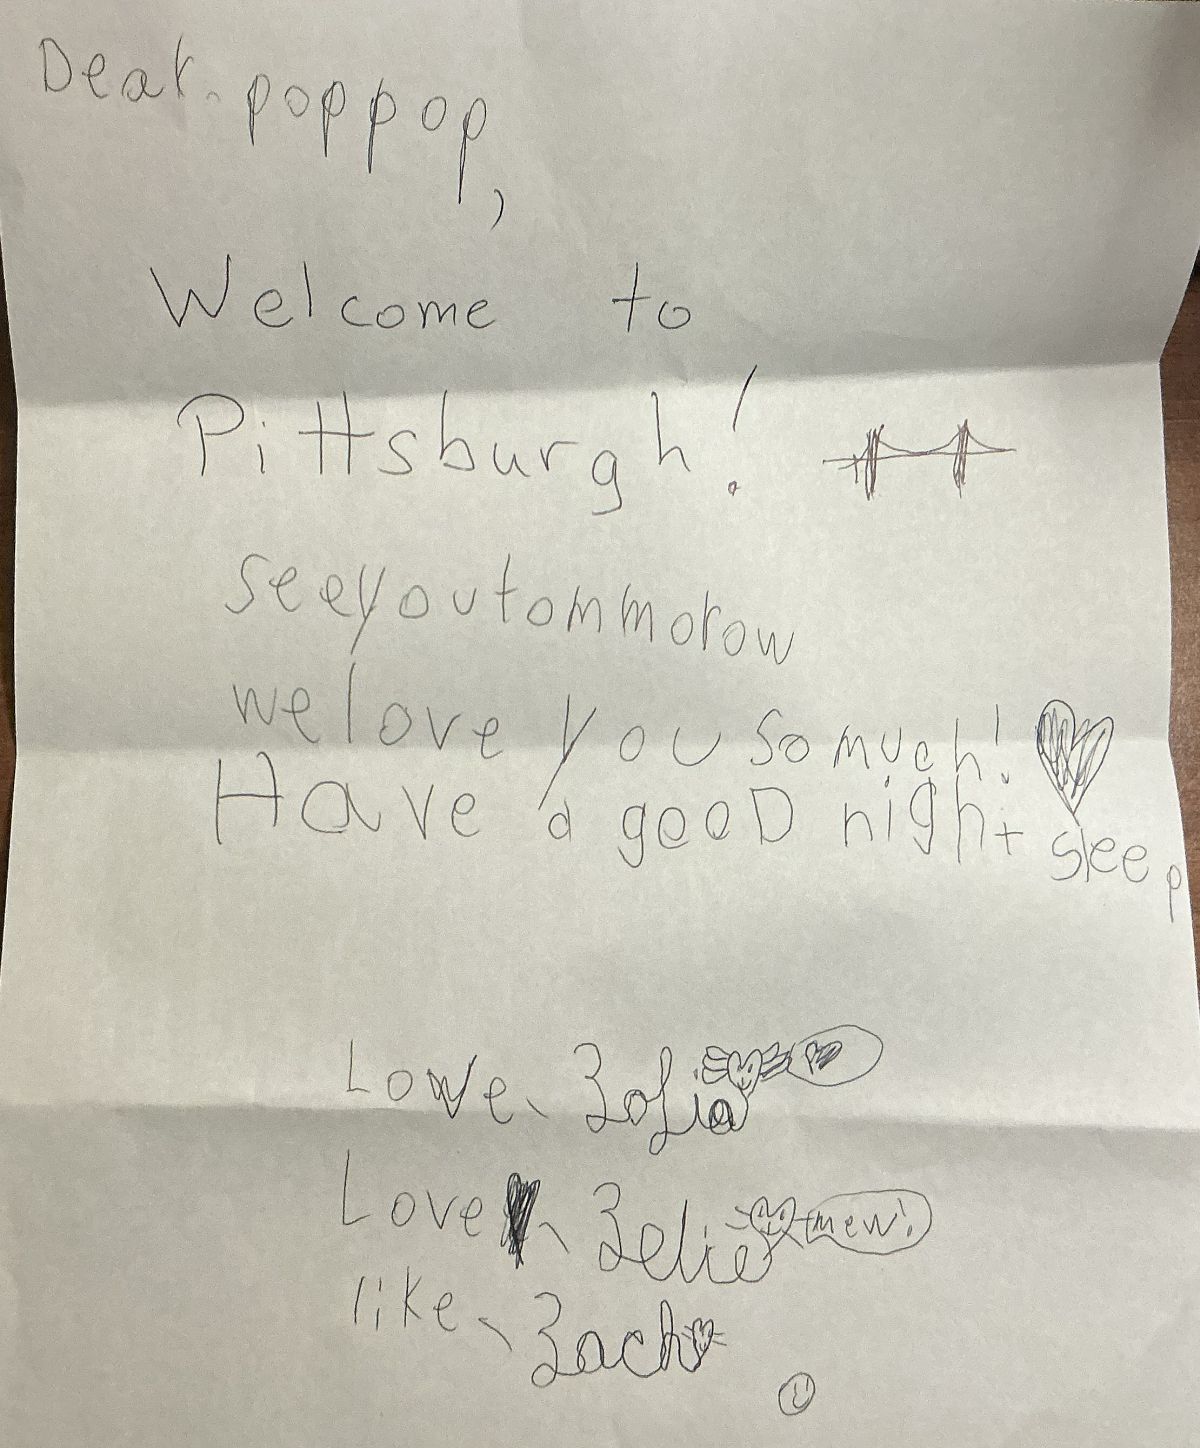 Dear poppop,
Welcome to
Pittsburgh!
seeyoutommorow
we love you so much!
Have a gooD night sleep
Love, Zofia
Love, Zelie mew!
like, Zach